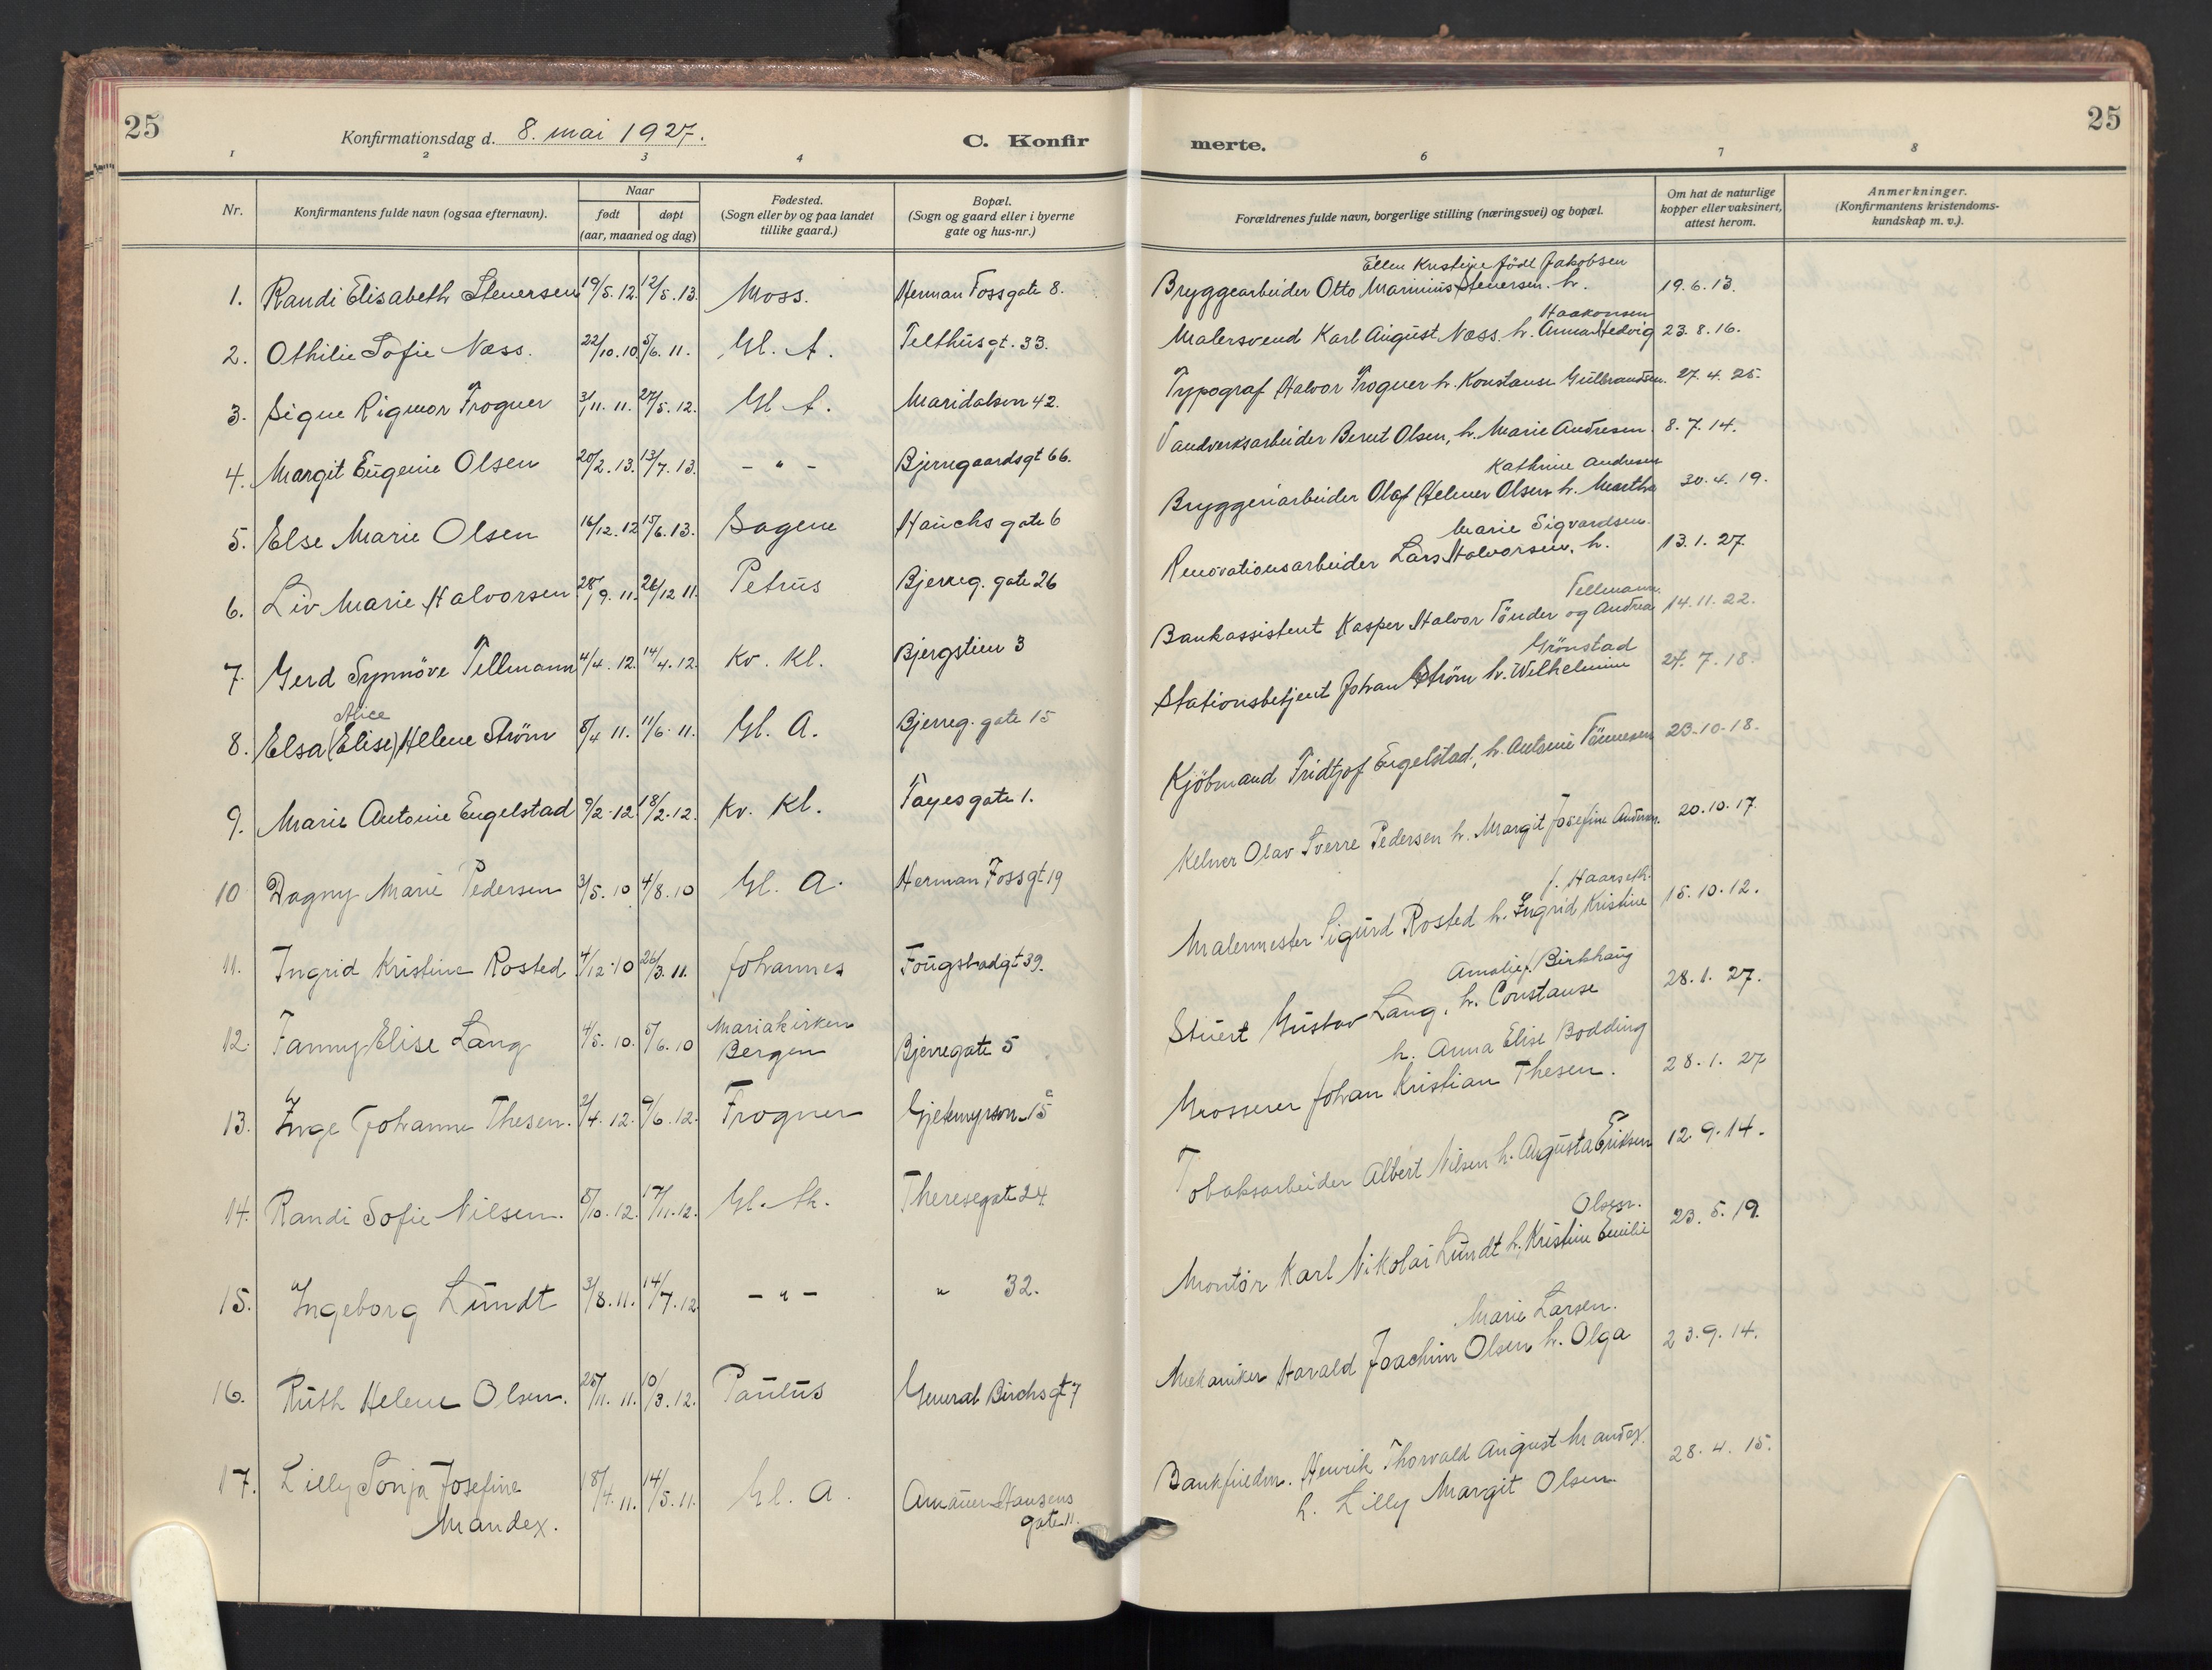 25
Konfirmationsdag d. 8. mai 1927.
C. Konfir
merte.
25
1 2 3 4 6 7 8
Nr.
Konfirmantens fulde navn (ogsaa efternavn).
Naar
født døpt
(aar, maaned og dag)
Fødested.
(Sogn eller by og paa landet
tillike gaard.)
Bopæl.
(Sogn og gaard eller i byerne
gate og hus-nr.)
Forældrenes fulde navn, borgerlige stilling (næringsvei) og bopæl.
Om hat de naturlige
kopper eller vaksinert,
attest herom.
Anmerkninger.
(Konfirmantens kristendoms-
kundskap m. v.).
Ellen Kristine född Jakobsen
1. Randi Elisabeth Stenersen 19/5. 12. 12/5. 13. Moss. Herman Fossgate 8. Bryggearbeider Otto Marinius Stenersen. h. 19.6.13.
Haakonsen
2. Othilie Sofie Næss. 22/10. 10 5/6. 11. Gl. A. Telthusgt. 33. Malersvend Karl August Næss. h. Anna Hedvig 23.8.16.
3. Signe Rigmor Frogner 3/11. 11. 27/5. 12. Gl A. Maridalsvn 42. Typograf Halvor Frogner h. Konstanse Gulbrandsen. 27.4.25.
4. Margit Eugenie Olsen 20/2. 13. 13/7. 13. - " - Bjerregaardsgt 66. Vandverksarbeider Bernt Olsen, h. Marie Andresen. 8.7.14.
Kathrine Andresen
5. Else Marie Olsen 16/12. 12 15/6. 13. Sagene Hauchs gate 6 Bryggeriarbeider Olaf Helmer Olsen h. Martha 30.4.19.
Marie Sigvardsen.
6. Liv Marie Halvorsen 28/9. 11. 26/12 11. Petrus Bjerreg. gate 26 Renovationsarbeider Lars Halvorsen. h. 13.1.27.
Tellmann.
7. Gerd Synnöve Tellmann 4/4. 12. 14/4. 12. Kv. Kl. Bjergstien 3 Bankassistent Kasper Halvor Tönder og Andrea 14.11.22.
Alice
Grönstad
8. Elsa (Elise) Helene Ström 8/4 11. 11/6. 11. Gl. A. Bjerreg. gate 15 Stationsbetjent Johan Ström h. Wilhelmine 27.7.18.
9. Marie Antonie Engelstad 9/2. 12 18/2. 12. Kv. Kl. Tayesgate 1. Kjöbmand Fridtjof Engelstad, h. Antonie Tönnesen 23-10-18.
10 Dagny Marie Pedersen 3/5. 10 4/8. 10 Gl. A. Herman Fossgt 19 Kelner Olav Sverre Pedersen h. Margit Josefine Andersen. 20.10.17.
f. Haarseth.
11. Ingrid Kristine Rosted 4/12. 10 26/3. 11. Johannes Fougstadgt 39. Malermester Sigurd Rosted h. Ingrid Kristine 15.10.12.
Amalie f. Birkhaug
12. Fanny Elise Lang 4/5. 10. 5/6. 10 Mariakirken
Bergen Bjerregate 5 Stuert Gustav Lang, h. Constanse 28.1.27.
h. Anna Elise Bodding
13. Inge Johanne Thesen. 2/4. 12. 9/6. 12. Frogner Gjetemyrsvn. 15 c Grosserer Johan Kristian Thesen. 28.1.27
14. Randi Sofie Nilsen. 8/10. 12. 17/11. 12. Gl. Ak. Theresegate 24. Tobaksarbeider Albert Nilsen h. Augusta Eriksen 12.9.14.
Olsen.
15. Ingeborg Lundt 3/8. 11. 14/7. 12 - " - " 32. Montör Karl Nikolai Lundt h. Kristine Emilie 23.5.19.
Marie Larsen.
16. Ruth Helene Olsen. 25/11. 11. 10/3. 12. Paulus General Birchsgt 7 Mekaniker Harald Joachim Olsen h. Olga 23.9.14.
17. Lilly Sonja Josefine
Mandex. 18/4. 11. 14/5. 11. Gl. A. Amauer Hansens
gate 11. Bankfuldm. Henrik Thorvald August Mandex.
h. Lilly Margit Olsen 28.4.15.